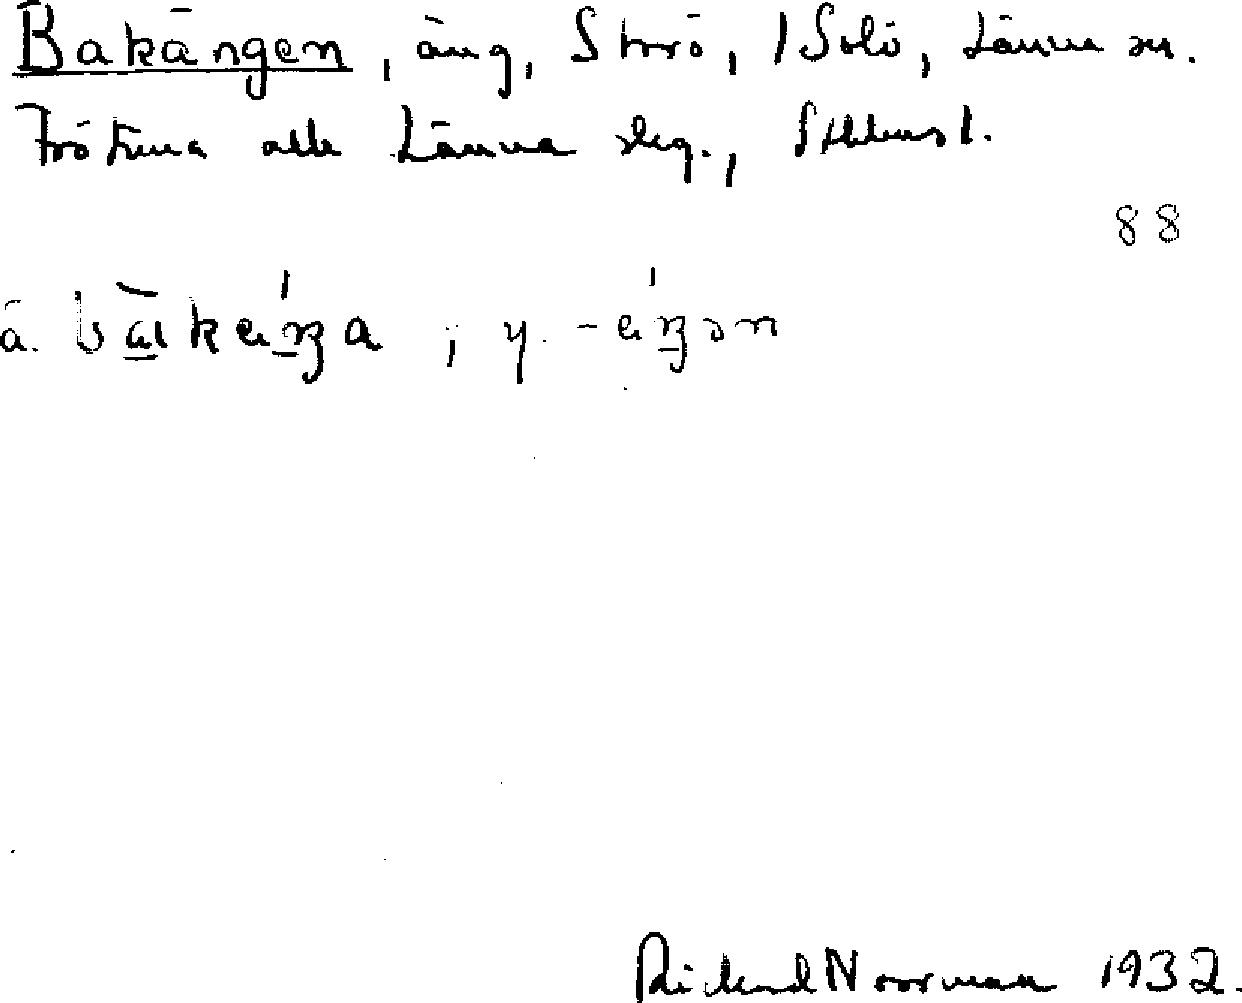 Bakängen, äng, Storö, 1 Solö, Länna sn.
Frötuna och Länna skg., Sthlms l.
88
ä. bàkeŋa ; y. -eŋən
Rickard Norrman 1932.